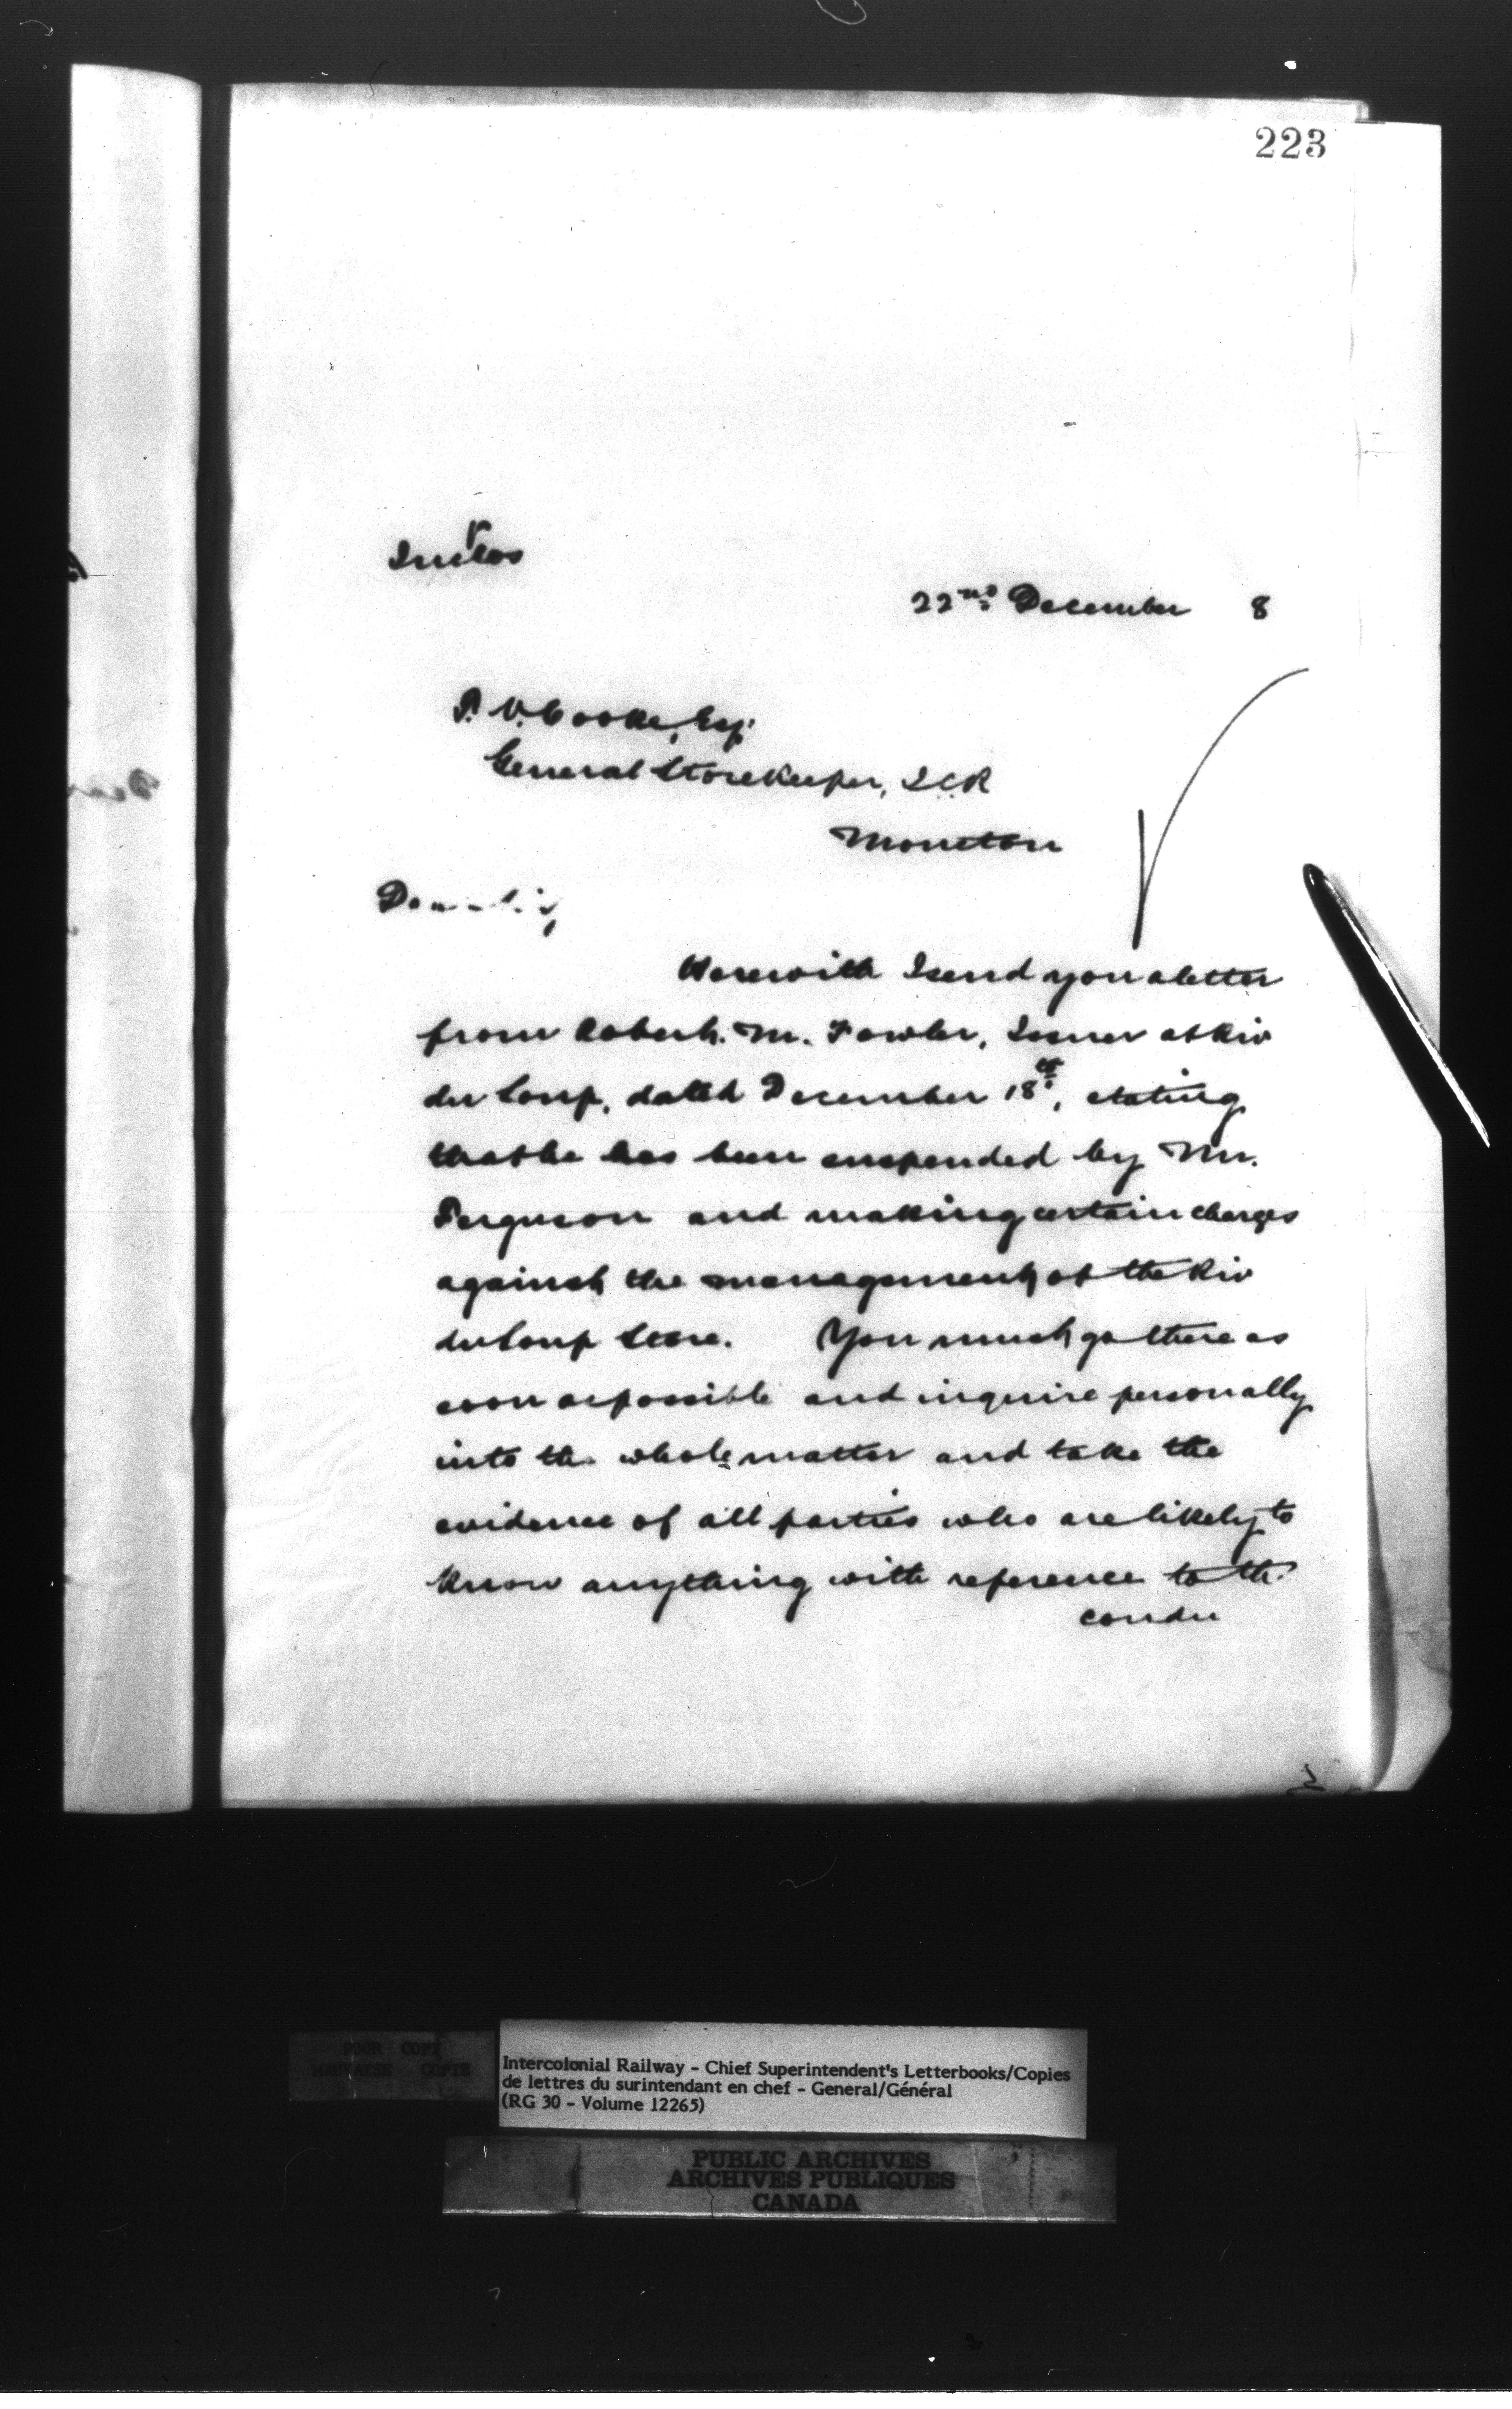 223
22nd December 8
P. V. Cooke, Esq.
General Storekeeper, ICR
Moncton
Dear Sir,
Herewith I send you a letter
from Robert. M. Fowler, Issuer at Riv
du Loup, dated December 18th, stating
that he has been suspended by Mr.
Ferguson and making certain charges
against the management of the Riv
du Loup Store. You must go there as
soon as possible and inquire personally
into the whole matter and take the
evidence of all parties who are likely to
know anything with reference to the
condu
POOR COPY
MAUVAISE COPIE
Intercolonial Railway - Chief Superintendent's Letterbooks/Copies
de lettres du surintendant en chef - General/Général
(RG 30 - Volume 12265)
PUBLIC ARCHIVES
ARCHIVES PUBLIQUES
CANADA